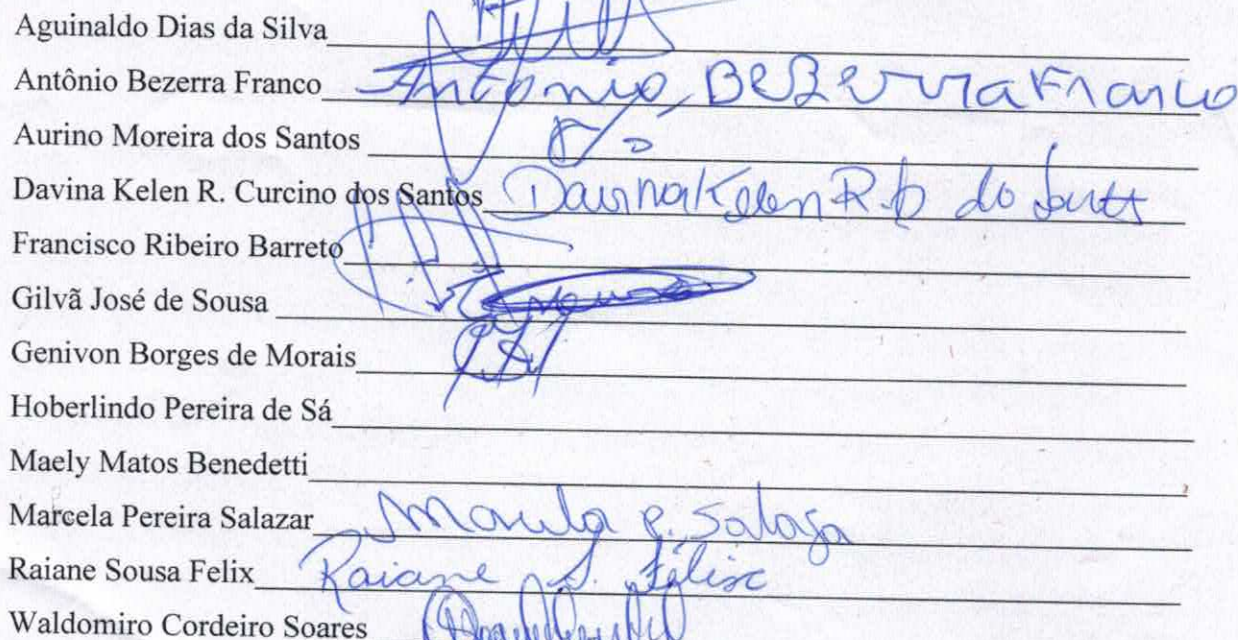 Aguinaldo Dias da Silva
Antônio Bezerra Franco Antônio BeZerra Franco
Aurino Moreira dos Santos
Davina Kelen R. Curcino dos Santos Davina Kelen R
Francisco Ribeiro Barreto
Gilvã José de Sousa
Genivon Borges de Morais
Hoberlindo Pereira de Sá
Maely Matos Benedetti
Marcela Pereira Salazar Marcela P. Salazar
Raiane Sousa Felix Raiane S. Felix
Waldomiro Cordeiro Soares